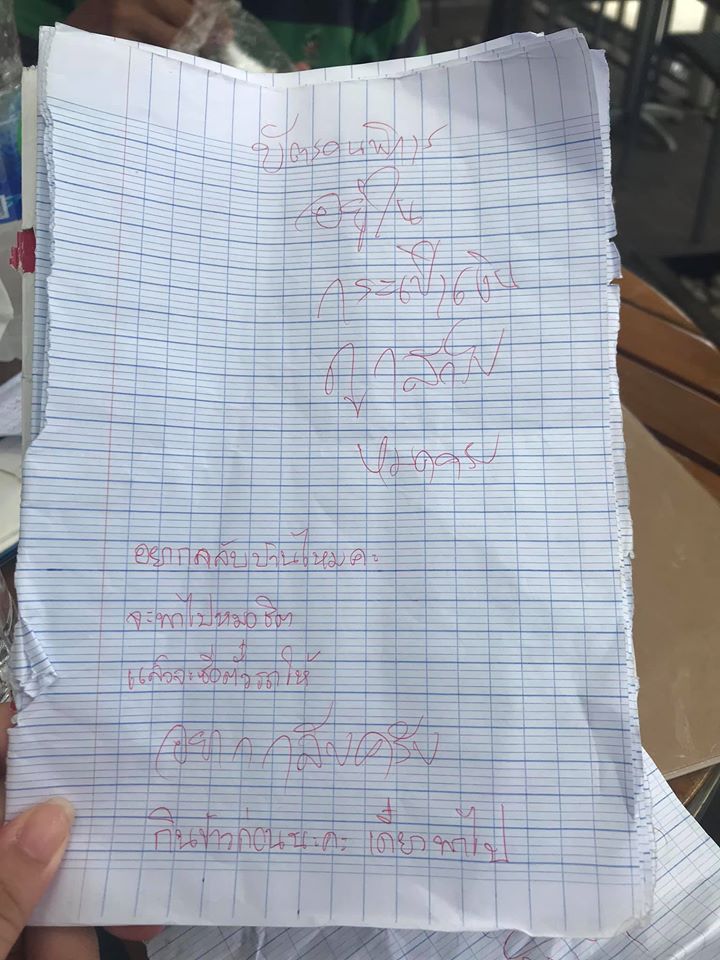 บัตรคนพิการ
อยู่ใน
กระเป๋าเงิน
หมดครับ
อยากกลับบ้านไหมคะ
จะพาไปหมอชิต
แล้วจะซื้อตั๋วรถให้
อยากกลับครับ
กินข้าวก่อนนะคะ เดี๋ยวพาไป